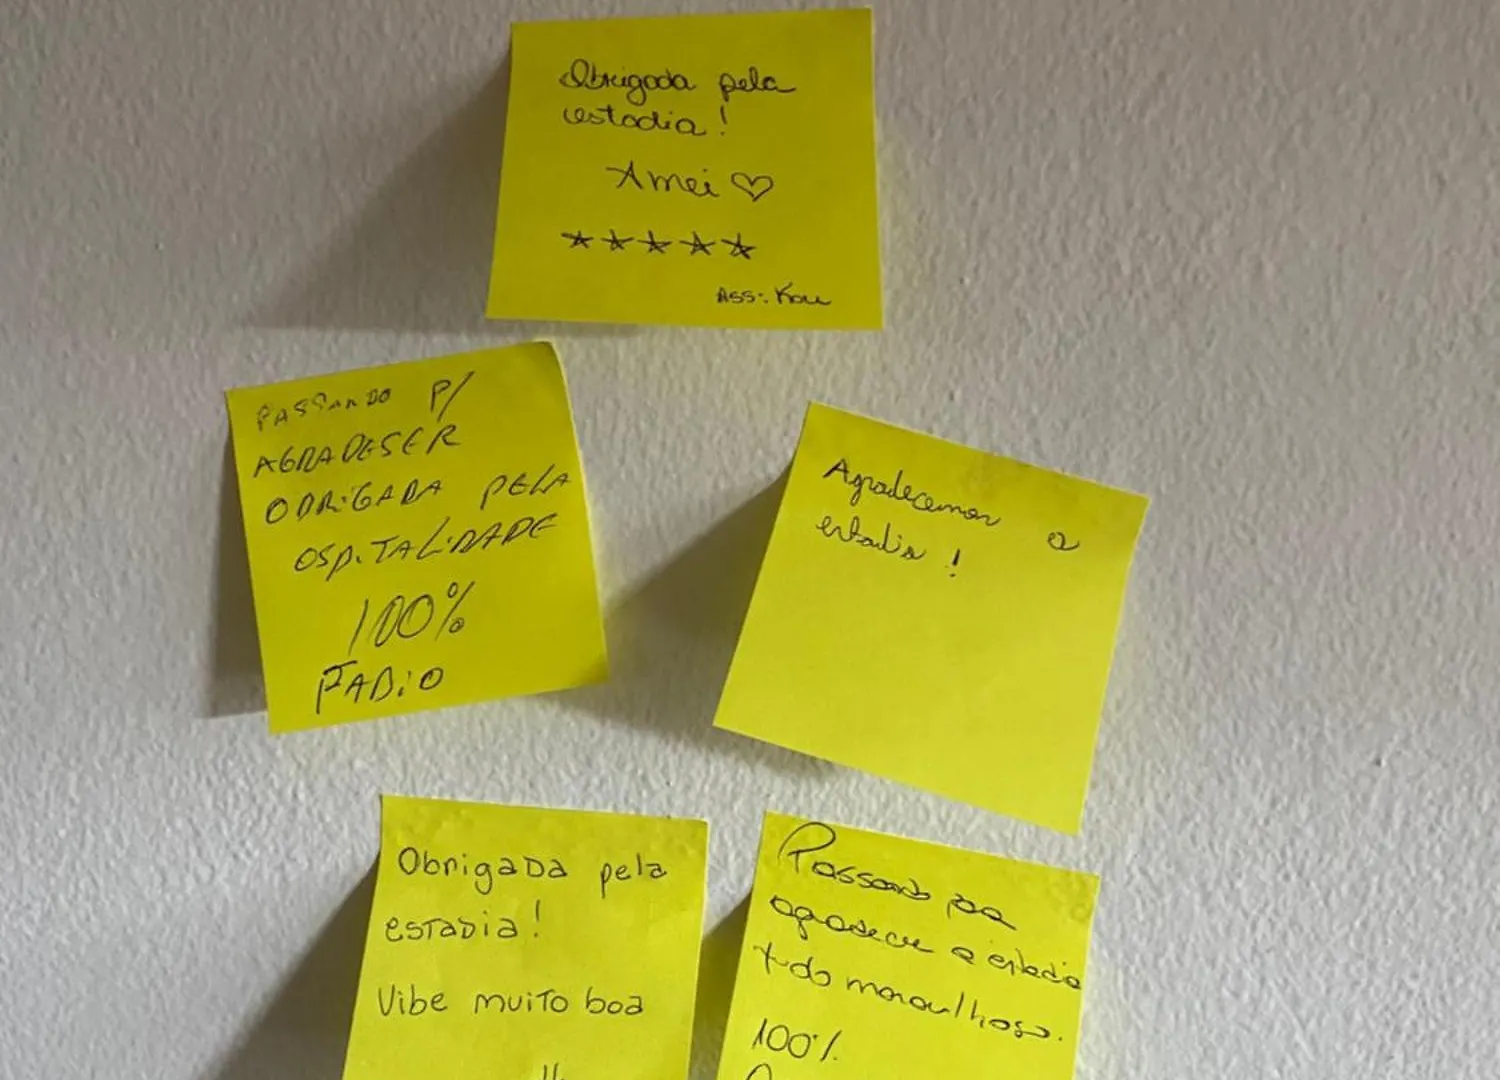 Obrigada pela
estadia!
Amei ♡
★★★★★
Ass:. Kau
PASSANDO P/
AGRADESER
OBRIGADA PELA
OSPITALIDADE
100%
FABIO
Agradecemos a
estadia !
Obrigada pela
estadia!
Vibe muito boa
Passando pra
agradecer a estadia
tudo maravilhoso.
100%